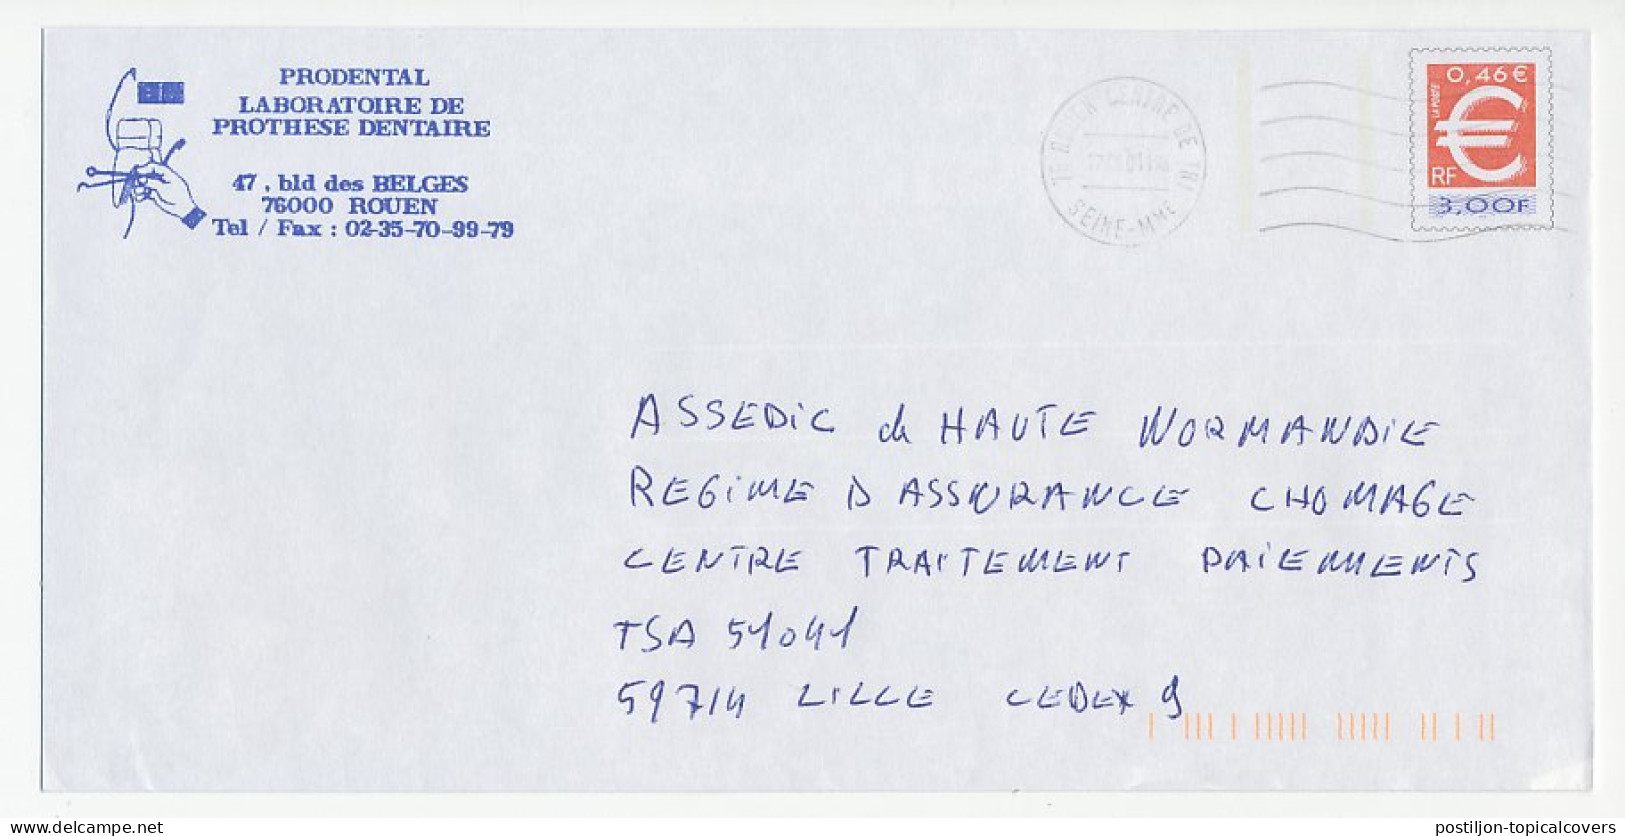 PRODENTAL
LABORATOIRE DE
PROTHESE DENTAIRE
47, bld des BELGES
76000 ROUEN
Tel / Fax : 02-35-70-99-79
76 ROUEN CENTRE DE TRI
SEINE-MME
0,46 €
LA POSTE
€
RF
3,00F
ASSEDIC de HAUTE NORMANDIE
REGIME D ASSURANCE CHOMAGE
CENTRE TRAITEMENT PAIEMENTS
TSA 51041
59714 LILLE CEDEX 9
postiljon-topicalcovers